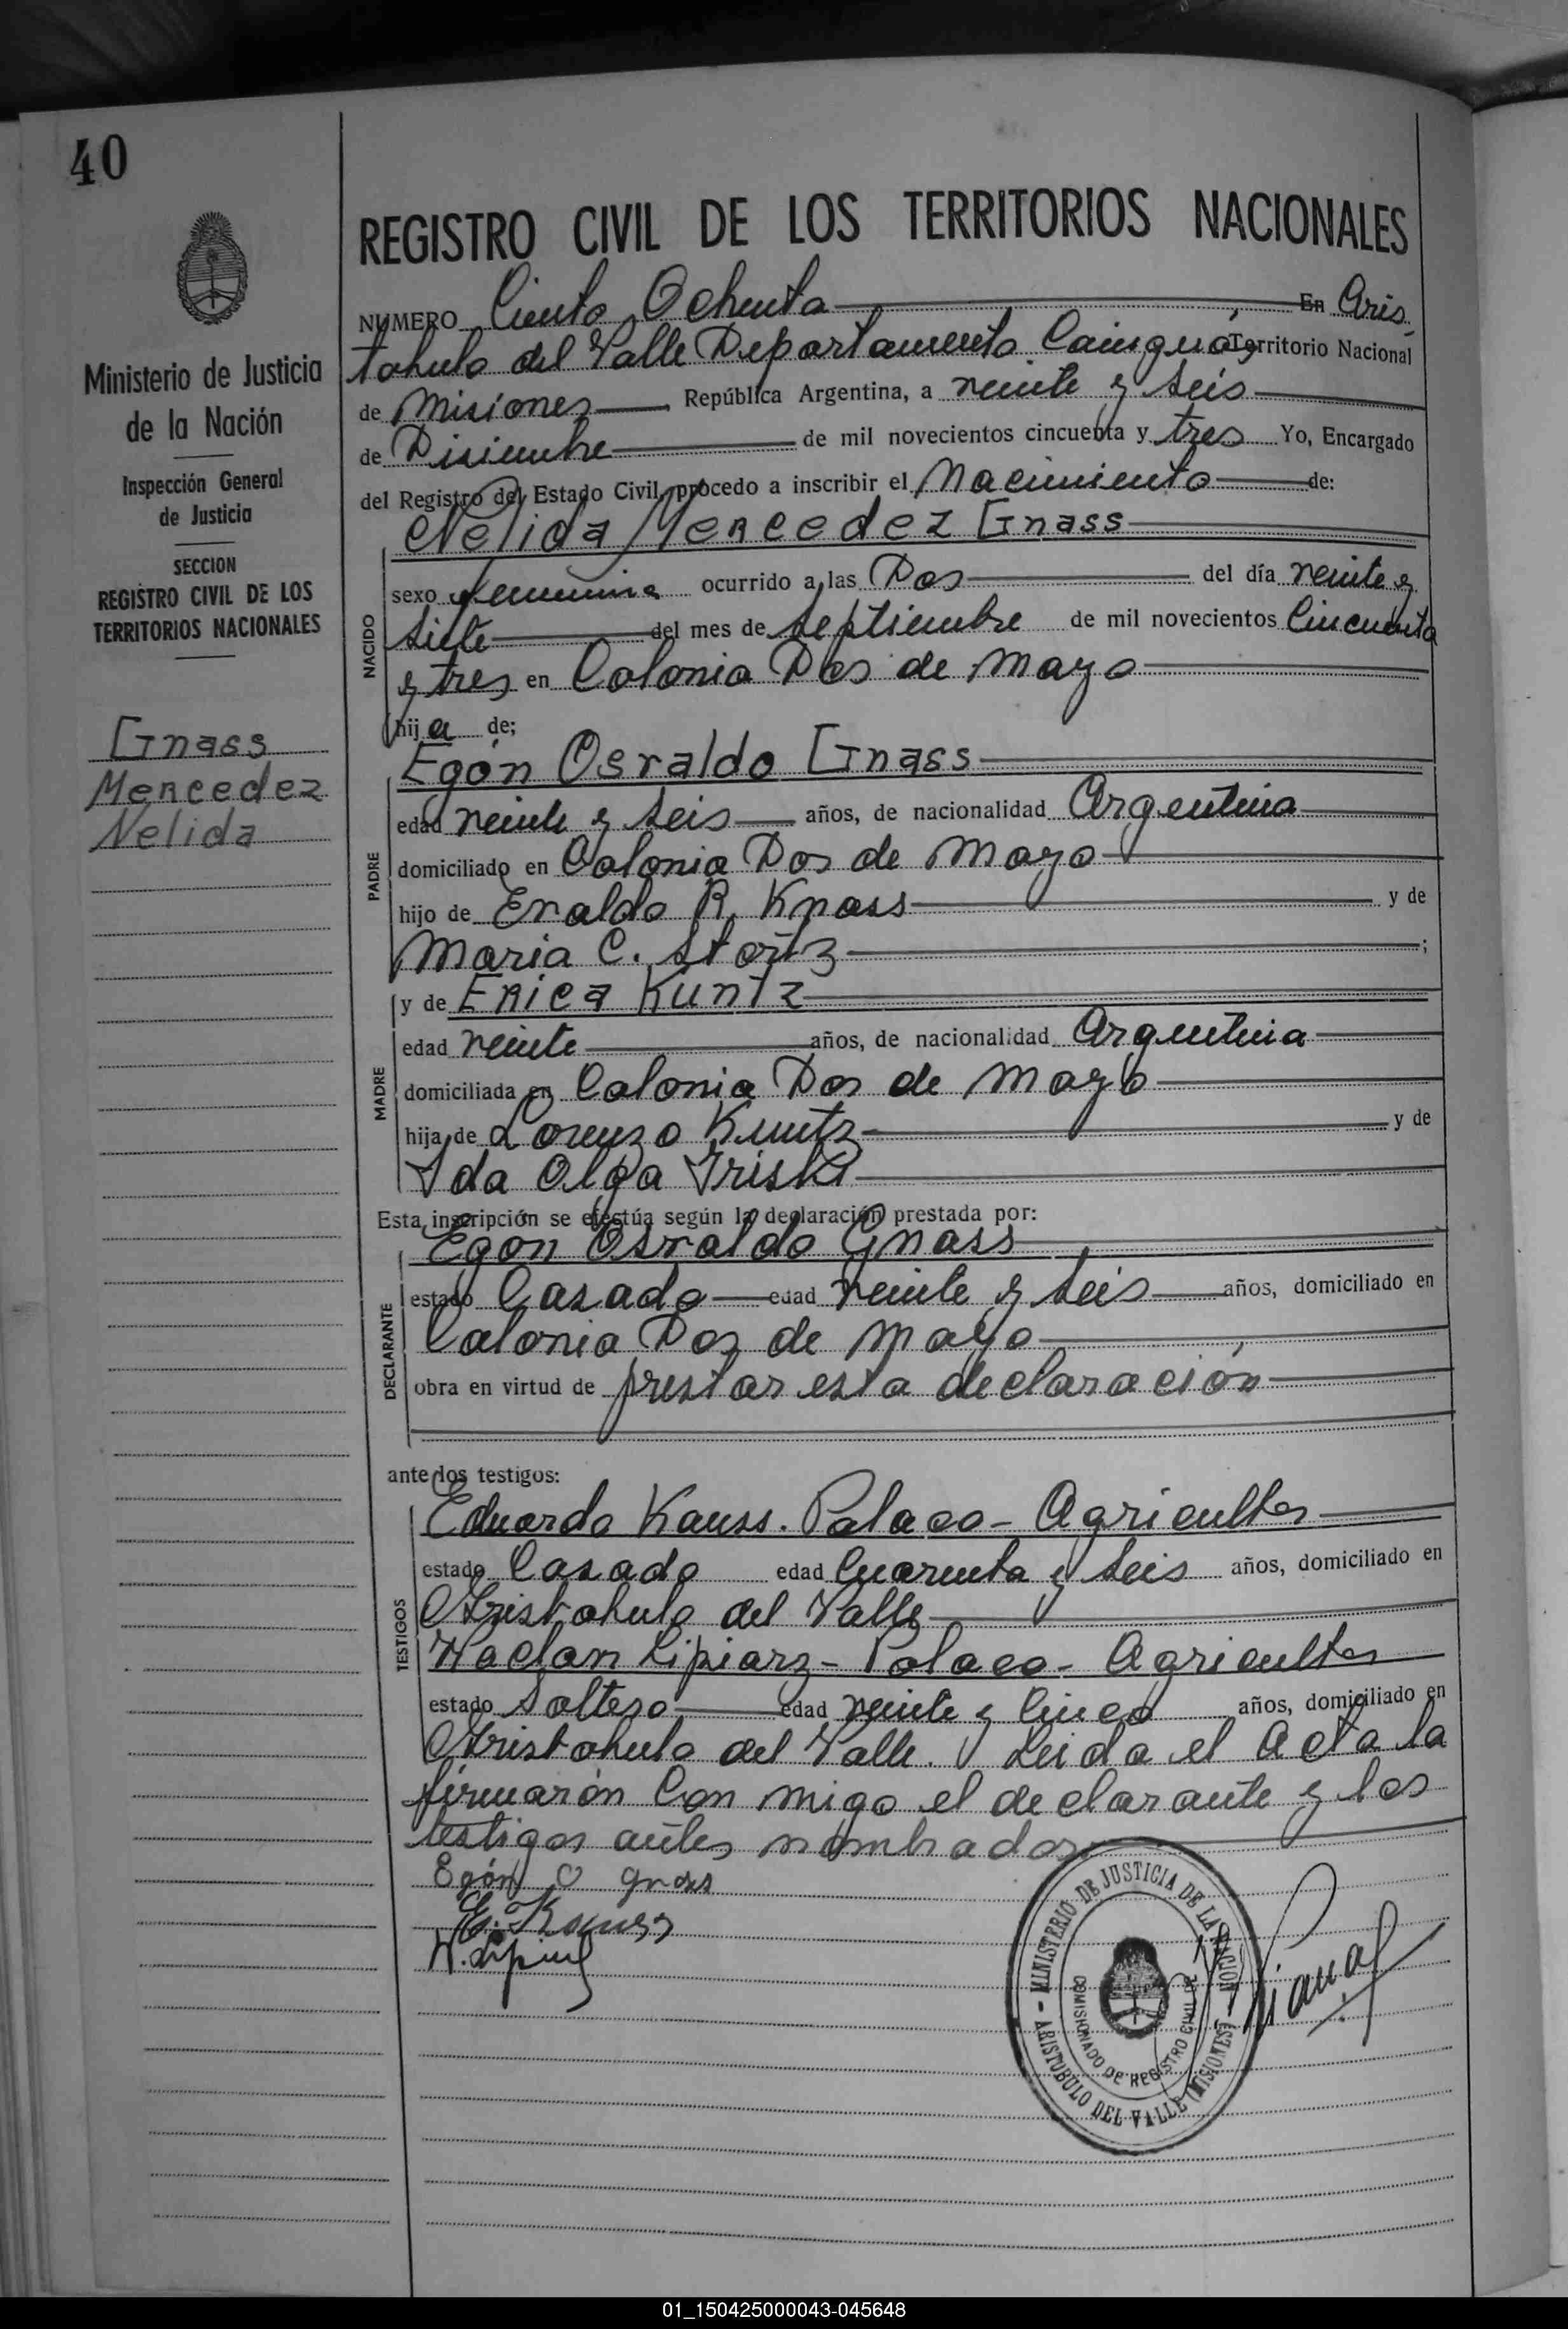 40
Ministerio de Justicia
de la Nación
Inspección General
de Justicia
SECCION
REGISTRO CIVIL DE LOS
TERRITORIOS NACIONALES
Gnass
Mercedez
Nelida
REGISTRO CIVIL DE LOS TERRITORIOS NACIONALES
NUMERO Ciento Ochenta En Aris-
tobulo del Valle Departamento Cainguás Territorio Nacional
de Misiones República Argentina, a veinte y seis
de Disiembre de mil novecientos cincuenta y tres Yo, Encargado
del Registro del Estado Civil, procedo a inscribir el Nacimiento de:
Nelida Mercedez Gnass
NACIDO
sexo femenina ocurrido a las Dos del día veinte y
siete del mes de septiembre de mil novecientos Cincuenta
y tres en Colonia Dos de Mayo
hija de;
Egón Osvaldo Gnass
PADRE
edad veinte y seis años, de nacionalidad Argentina
domiciliado en Colonia Dos de Mayo
hijo de Evaldo R. Knass y de
Maria C. Stortz ;
y de Erica Kuntz
MADRE
edad veinte años, de nacionalidad Argentina
domiciliada en Colonia Dos de Mayo
hija de Lorenzo Kuntz y de
Ida Olga Friske
Esta inscripción se efectúa según la declaración prestada por:
Egon Osvaldo Gnass
DECLARANTE
estado Casado edad veinte y seis años, domiciliado en
Colonia Dos de Mayo
obra en virtud de prestar esta declaración
ante los testigos:
Eduardo Kauss. Polaco - Agricultor
TESTIGOS
estado Casado edad Cuarenta y seis años, domiciliado en
Aristobulo del Valle
Waclan Lipiarz - Polaco - Agricultor
estado Soltero edad veinte y Cinco años, domiciliado en
Aristobulo del Valle. Leida el Acta la
firmarón Con migo el declarante y los
testigos antes nombrados
Egón O gnass
E. Kauss
W. Lipiarz
MINISTERIO DE JUSTICIA DE LA NACION
COMISIONADO DE REGISTRO CIVIL DE
ARISTOBULO DEL VALLE (MISIONES)
01_150425000043-045648